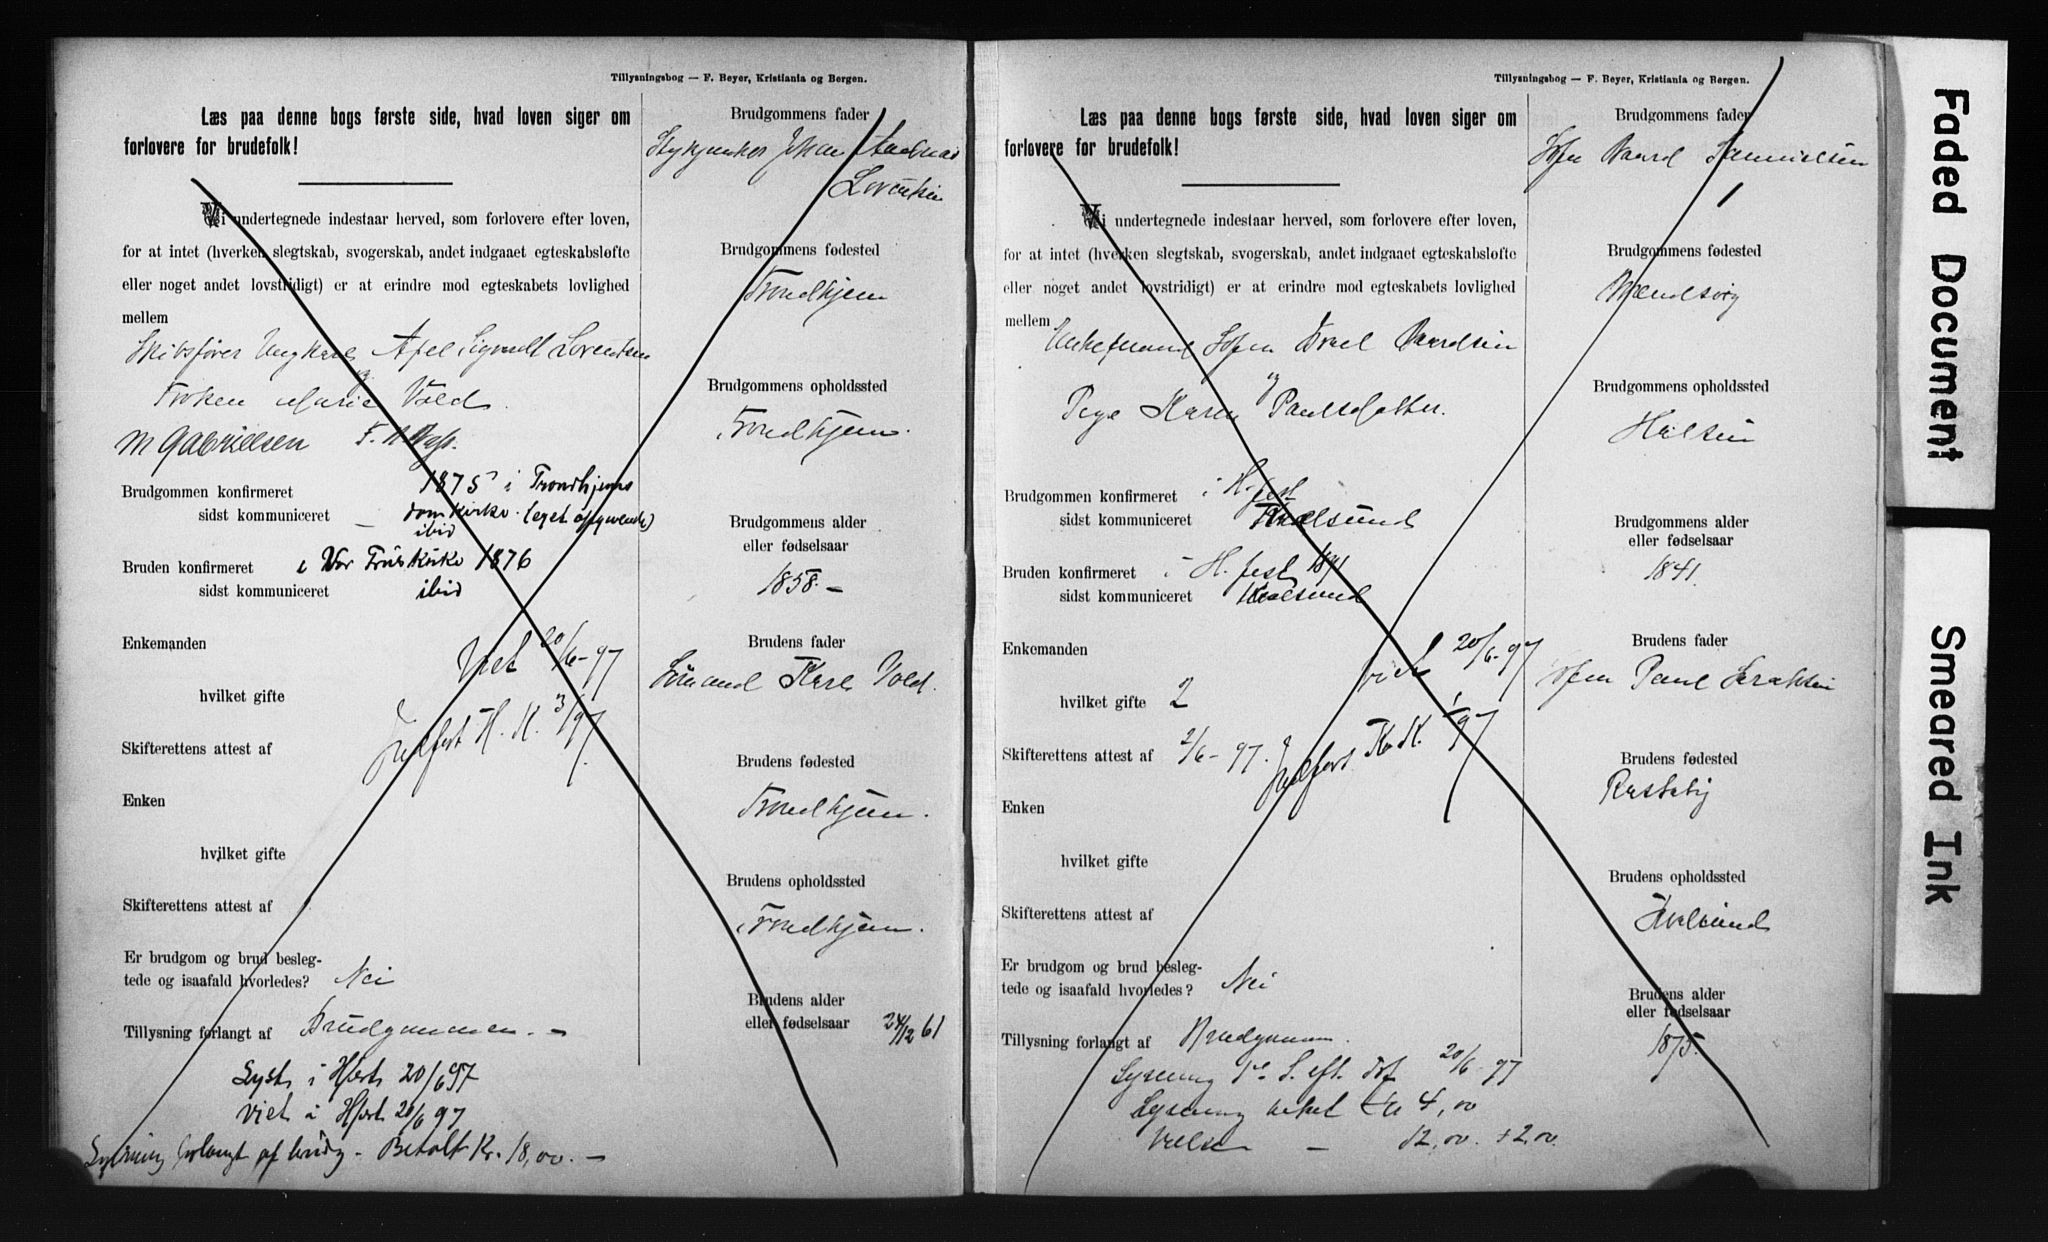 Tillysningsbog — F. Beyer, Kristiania og Bergen.
Læs paa denne bogs første side, hvad loven siger om
forlovere for brudefolk!
Vi undertegnede indestaar herved, som forlovere efter loven,
for at intet (hverken slegtskab, svogerskab, andet indgaaet egteskabsløfte
eller noget andet lovstridigt) er at erindre mod egteskabets lovlighed
mellem
Skibsfører Ungkarl Axel Sigvardt Lorentsen
og
Frøken Marie Vold
M Gabrielsen
Brudgommen konfirmeret 1875 i Trondhjems
sidst kommuniceret domkirke (eget opgivende)
ibid
Bruden konfirmeret i Vor Frus Kirke 1876
sidst kommuniceret ibid
Enkemanden
Viet 20/6-97
hvilket gifte
Indført H. K. 3/97
Skifterettens attest af
Enken
hvilket gifte
Skifterettens attest af
Er brudgom og brud beslegtede og isaafald hvorledes? Nei
Tillysning forlangt af Brudgommen. —
Lyst i Hfest 20/6 97
viet i Hfest 20/6 97
Lysning forlangt af brudg - Betalt Kr. 18,00. —
Brudgommens fader
Johan
Lorentsen
Brudgommens fødested
Trondhjem
Brudgommens opholdssted
Trondhjem.
Brudgommens alder
eller fødselsaar
1858. —
Brudens fader
Karl Vold.
Brudens fødested
Trondhjem.
Brudens opholdssted
Trondhjem.
Brudens alder
eller fødselsaar 24/12 61
Tillysningsbog — F. Beyer, Kristiania og Bergen.
Læs paa denne bogs første side, hvad loven siger om
forlovere for brudefolk!
Vi undertegnede indestaar herved, som forlovere efter loven,
for at intet (hverken slegtskab, svogerskab, andet indgaaet egteskabsløfte
eller noget andet lovstridigt) er at erindre mod egteskabets lovlighed
mellem
Enkemand Søfin
og
Pige Karen Paulsdatter.
Brudgommen konfirmeret i H.fest
sidst kommuniceret Kvalsund
Bruden konfirmeret i H.fest 1891
sidst kommuniceret Kvalsund
Enkemanden
viet 20/6-97
hvilket gifte 2
Skifterettens attest af 2/6-97. Indført
Enken
hvilket gifte
Skifterettens attest af
Er brudgom og brud beslegtede og isaafald hvorledes? Nei
Tillysning forlangt af Brudgommen.
Lysning 20/6-97
Lysning 4,00
Vielse — 12,00 +2,00
Brudgommens fader
Søfin
Brudgommens fødested
Brudgommens opholdssted
Brudgommens alder
eller fødselsaar
1841.
Brudens fader
Søfin Paul
Brudens fødested
Brudens opholdssted
Kvalsund
Brudens alder
eller fødselsaar
1875.
Faded Document
Smeared Ink